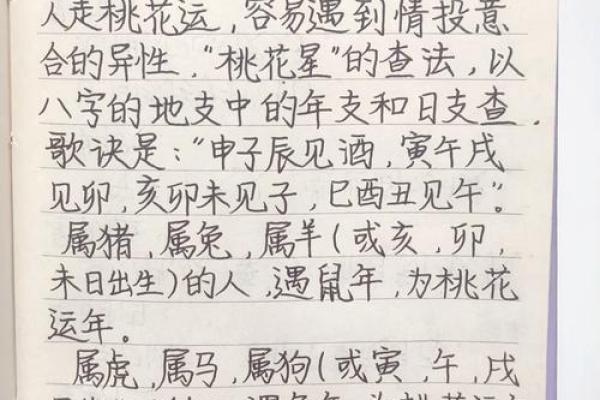 人走桃花运，容易遇到情投意
合的异性，“桃花星”的查法，以
八字的地支中的年支和日支查，
歌诀是：“申子辰见酒，寅午戌
见卯，亥卯未见子，巳酉丑见午”。
属猪，属兔，属羊（或亥，卯，
未日出生）的人，遇鼠年，为桃花
运年。
属虎，属马，属狗（或寅，午，戌